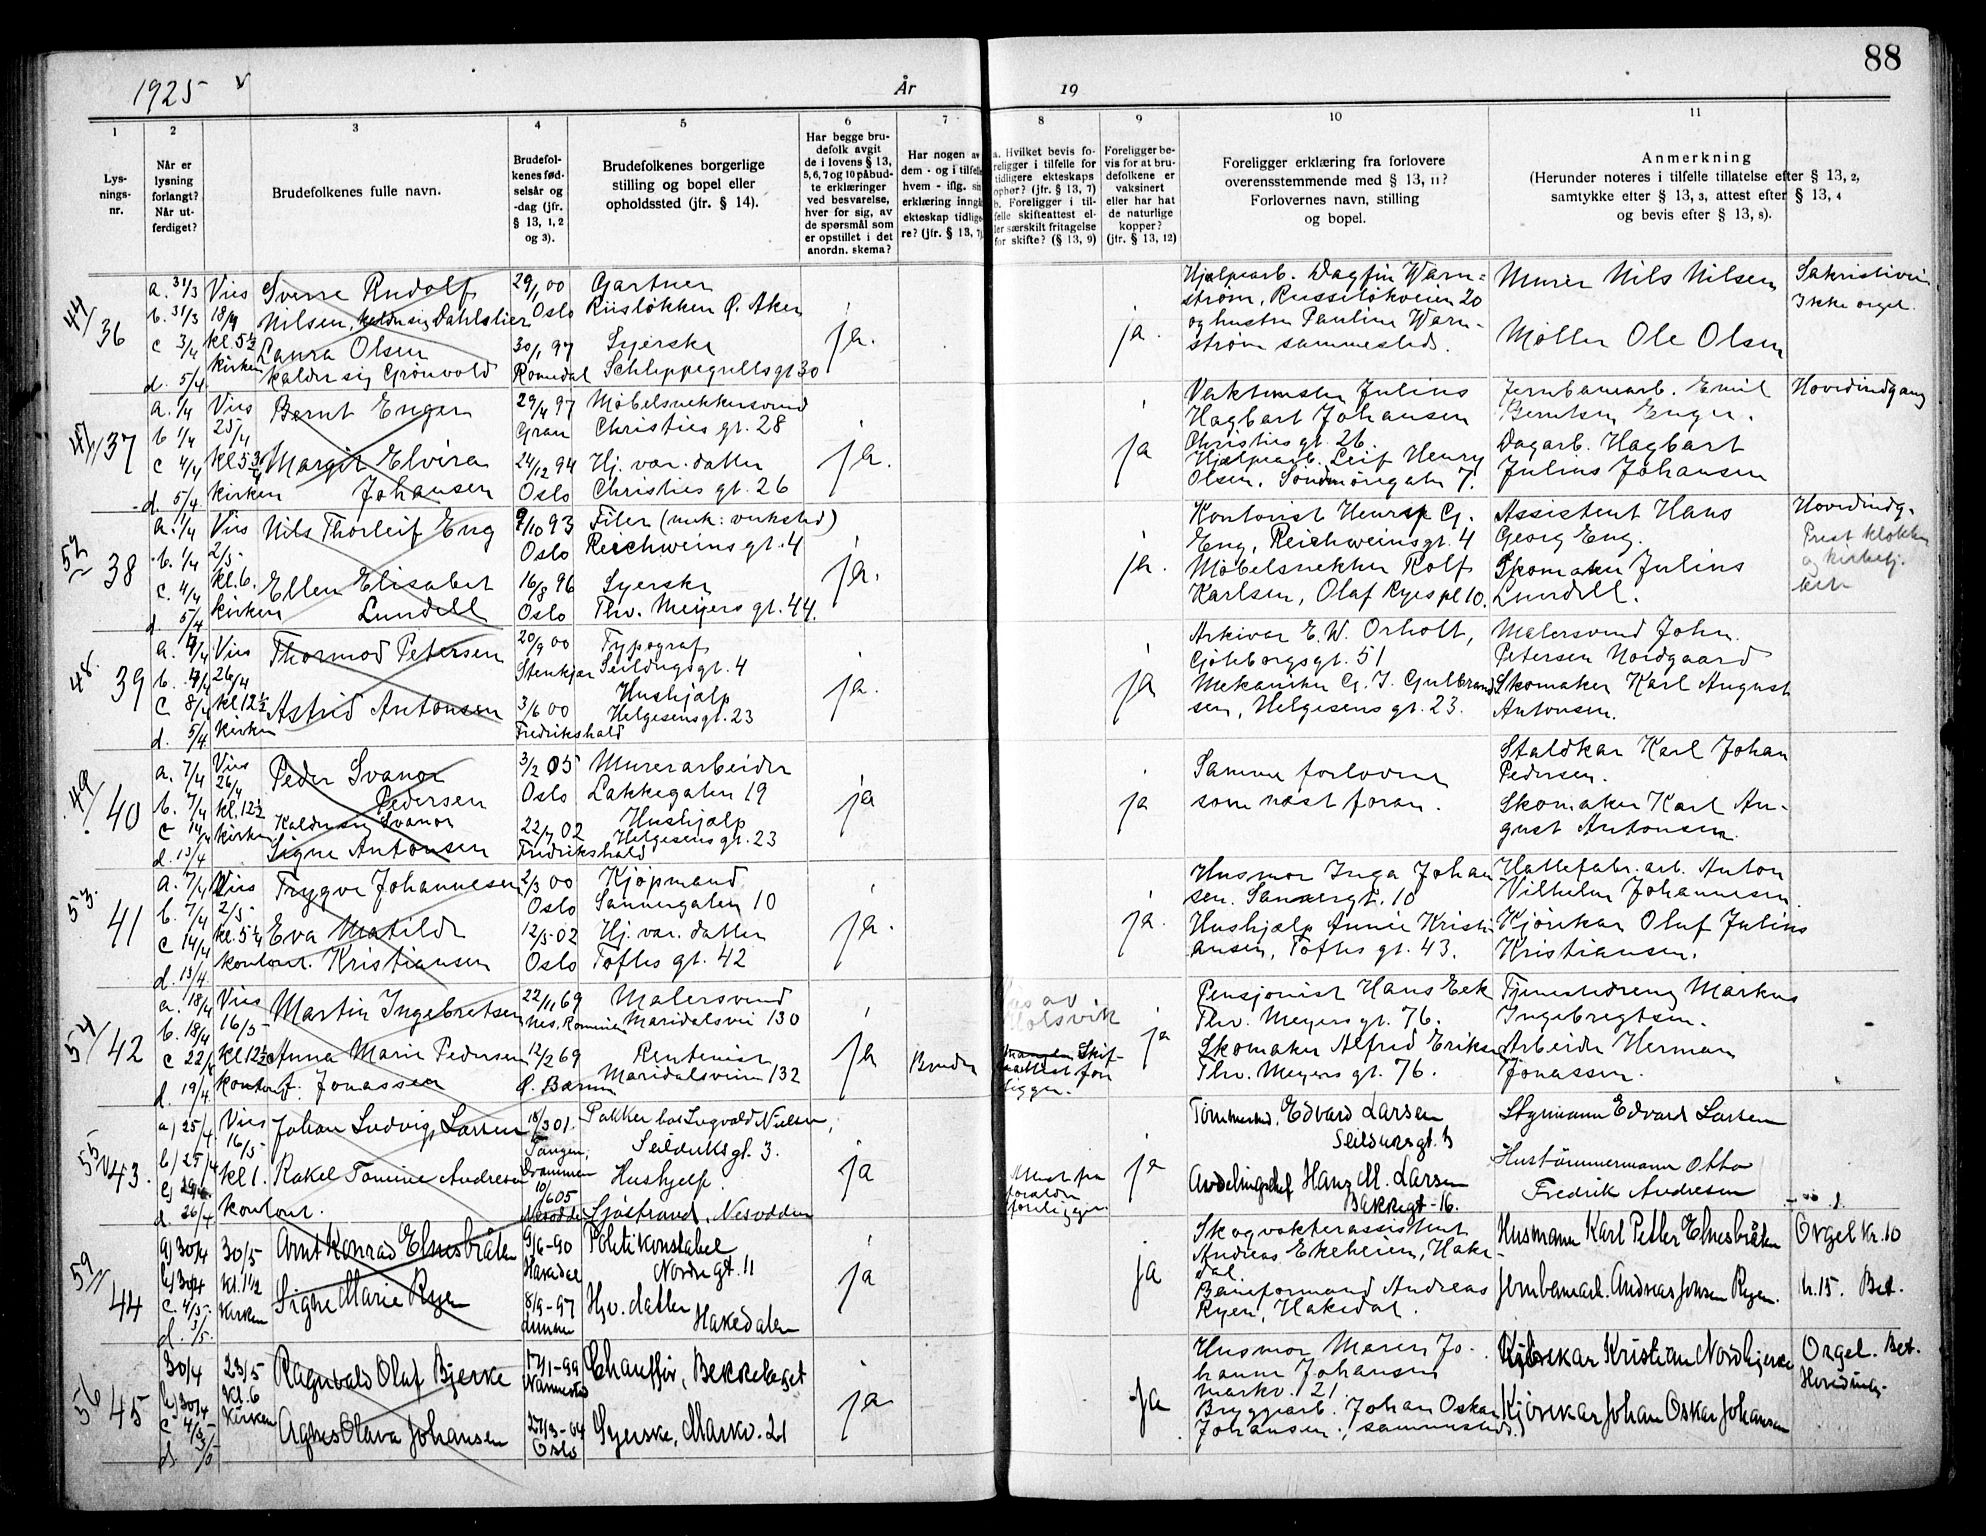 88
1925
År
19
1
2
3
4
5
6
7
8
9
10
11
Lys-
nings-
nr.
Når er
lysning
forlangt?
Når ut-
ferdiget?
Brudefolkenes fulle navn.
Brudefol-
kenes fød-
selsår og
-dag (jfr.
§ 13, 1, 2
og 3).
Brudefolkenes borgerlige
stilling og bopel eller
opholdssted (jfr. § 14).
Har begge bru-
defolk avgit
de i lovens § 13,
5, 6, 7 og 10 påbud-
te erklæringer
ved besvarelse,
hver for sig, av
de spørsmål som
er opstillet i det
anordn. skema?
Har nogen av
dem - og i tilfelle
hvem - iflg. sin
erklæring inngåt
ekteskap tidlige-
re? (jfr. § 13, 7)
a. Hvilket bevis fo-
religger i tilfelle for
tidligere ekteskaps
ophør? (jfr. § 13, 7)
b. Foreligger i til-
felle skifteattest el-
ler særskilt fritagelse
for skifte? (§ 13, 9)
Foreligger be-
vis for at bru-
defolkene er
vaksinert
eller har hat
de naturlige
kopper?
(jfr. § 13, 12)
Foreligger erklæring fra forlovere
overensstemmende med § 13, 11?
Forlovernes navn, stilling
og bopel.
Anmerkning
(Herunder noteres i tilfelle tillatelse efter § 13, 2,
samtykke efter § 13, 3, attest efter § 13, 4
og bevis efter § 13, 8).
44/36
a. 31/3
b. 31/3
c 3/4
d. 5/4
Vies
18/4
kl. 5½
kirken
Sverre Rudolf
Nilsen, kalder sig Dahlslier
Laura Olsen
kalder sig Grønvold
29/1 00
Oslo
30/1 97
Romedal
Gartner
Riisløkken Ø. Aker
Syerske
Schleppegrellsgt 30
ja.
ja.
Hjælpearb. Dagfin Warn-
strøm, Russeløkveien 20
og hustru Pauline Warn-
strøm sammesteds.
Murer Nils Nilsen
Møller Ole Olsen
Sakristivei
Ikke orgel
47/37
a. 1/4
b 1/4
c 4/4
d. 5/4
Vies
25/4
kl 5 3/4
kirken
Bernt Enger
Margit Elvira
Johansen
29/4 97
Gran
24/12 94
Oslo
Møbelsnekkersvend
Christies gt. 28
Hj. vær. datter
Christies gt. 26
ja.
ja
Vaktmester Julius
Hagbart Johansen
Christies gt. 26.
Hjælpearb. Leif Henry
Olsen, Søndmørsgaten 7.
Jernbanearb. Emil
Berntsen Enger.
Dagarb. Hagbart
Julius Johansen
Hovedindgang
52
38
a. 1/4
b. 1/4
c. 4/4
d. 5/4
Vies
2/5
kl. 6.
kirken
Nils Thorleif Eng
Ellen Elisabet
Lundell
9/10 93
Oslo
16/8 96
Oslo
Filer (mek: verksted)
Reichweinsgt. 4
Syerske
Thv. Meyers gt. 44.
ja.
ja.
Kontorist Henry G.
Eng, Reichweinsgt. 4
Møbelsnekker Rolf
Karlsen, Olaf Ryes pl 10.
Assistent Hans
Georg Eng.
Skomaker Julius
Lundell.
Hovedindg.
Prest klokker
og kirketj.
48.
39
a.
b.
c 8/4
d. 5/4
Vies
26/4
kl 12½
kirken
Thormod Petersen
Astrid Antonsen
20/9 00
Stenkjær
3/6 00
Fredrikshald
Typograf
Seildugsgt. 4
Hushjælp
Helgesensgt. 23
ja.
ja
Arkivar E. W. Orholt,
Gjøteborgsgt. 51
Mekaniker G. J. Gulbrand
sen, Helgesens gt. 23.
Malersvend John
Petersen Nordgaard
Skomaker Karl August
Antonsen.
49/40
a. 7/4
b. 7/4
c 14/4
d. 13/4
Vies
26/4
kl. 12½
kirken
Peder Svanor
Pedersen
Kalder sig Svanor
Signe Antonsen
3/2 05
Oslo
22/7 02
Fredrikshald
Murerarbeider
Lakkegaten 19
Hushjælp
Helgesensgt. 23
ja
ja
Samme forlovere
som næst foran.
Staldkar Karl Johan
Pedersen.
Skomaker Karl Au-
gust Antonsen.
53.
41
a. 7/4
b. 7/4
c 14/4
d. 13/4
Vies
2/5
kl. 5¼
kontoret.
Trygve Johannesen
Eva Matilde
Kristiansen
2/3 00
Oslo
12/5 02
Oslo
Kjøpmand
Sannergaten 10
Hj. vær. datter
Toftes gt. 42
ja.
ja.
Husmor Inga Johan-
sen. Sannergt. 10
Hushjælp Annie Kristi-
ansen, Toftes gt. 43.
Hattefabr. arb. Anton
Vilhelm Johannesen.
Kjørekar Oluf Julius
Kristiansen.
54/42
a. 18/4
b. 18/4
c 22/4
d. 19/4
Vies
16/5
kl 12½
kontoret
Martin Ingebretsen
Anna Marie Pedersen
f. Jonassen
22/11 69
Nes. Romerike
12/2 69
Ø. Bærum
Malersvend
Maridalsvei 130
Rentenist
Maridalsveien 132
ja
Bruden
Holsvik
Skif-
teattest fore
ligger.
ja
Pensjonist Hans Eek
Thv. Meyers gt. 76.
Skomaker Alfred Eriksen
Thv. Meyers gt. 76.
Tjenestedreng Markus
Ingebregtsen.
Arbeider Herman
Jonassen.
55
43.
a) 25/4
b) 25/4
d. 26/4
Vies
16/5
kl 1.
kontoret.
Johan Ludvig Larsen
Rakel Tomine Andresen
18/3 01
Tangen,
Drammen
10/6 05
Nesodden
Pakker hos Ingvald Nielsen,
Seilduksgt. 3.
Hushjelp
Sjøstrand, Nesodden
ja
Attest fra
foreldre
foreligger.
ja
Tømmermd. Edvard Larsen
Seilduksgt. 3
Avdelingschef Hans M. Larsen
Bakkegt - 16.
Styrmann Edvard Larsen
Hustømmermann Otto
Fredrik Andresen
59/44
a) 30/4
b) 30/4
c. 4/5
d. 3/5.
30/5
Kl. 1½
Kirken
Arnt Konrad Elnesbråten
Signe Marie Ryen
9/6-90
Hakedal
8/9-97
Lunner
Politikonstabel
Nordre gt. 11
Hjv. datter
Hakedalen
ja
ja
Skogvokterassistent
Andreas Ekeheien, Hake-
dal.
Baneformand Andreas
Ryen, Hakedal.
Husmann Karl Petter Elnesbråten
Jernbanearb. Andreas Jonsen Ryen.
Orgel Kr. 10
kr. 15. Bet.
56
45
30/4
b) 30/4
c 4/5
d 3/5
23/5
Kl. 6
Kirken
Ragnvald Olaf Bjerke
Agnes Olava Johansen
17/1-99
Nannestad
27/3-04
Oslo
Chauffør, Bekkelaget
Syerske, Markv. 21
ja
Ja
Husmor Maren Jo-
hanne Johansen
Markv. 21
Bryggearb. Johan Oskar
Johansen, sammesteds.
Kjørekar Kristian Nordbjerke
Kjørekar Johan Oskar Johansen
Orgel. Bet.
Hovedindg.